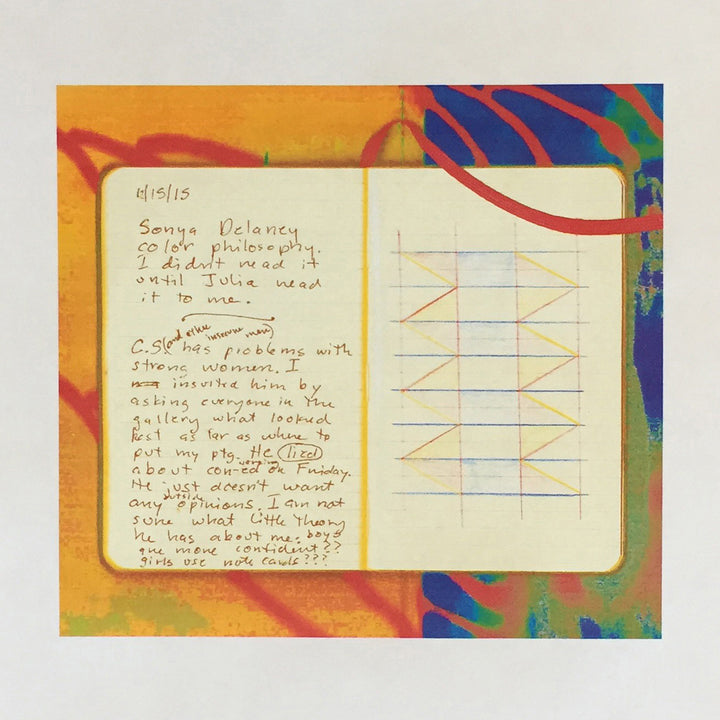 11/15/15
Sonya Delaney
color philosophy.
I didn't read it
until Julia read
it to me.
(and other insecure men)
C.S. has problems with
strong women. I
insulted him by
asking everyone in the
gallery what looked
best as far as where to
put my ptg. He lied
about con-ed version on Friday.
He just doesn't want
any outside opinions. I am not
sure what little theory
he has about me. boys
are more confident??
girls use note cards???